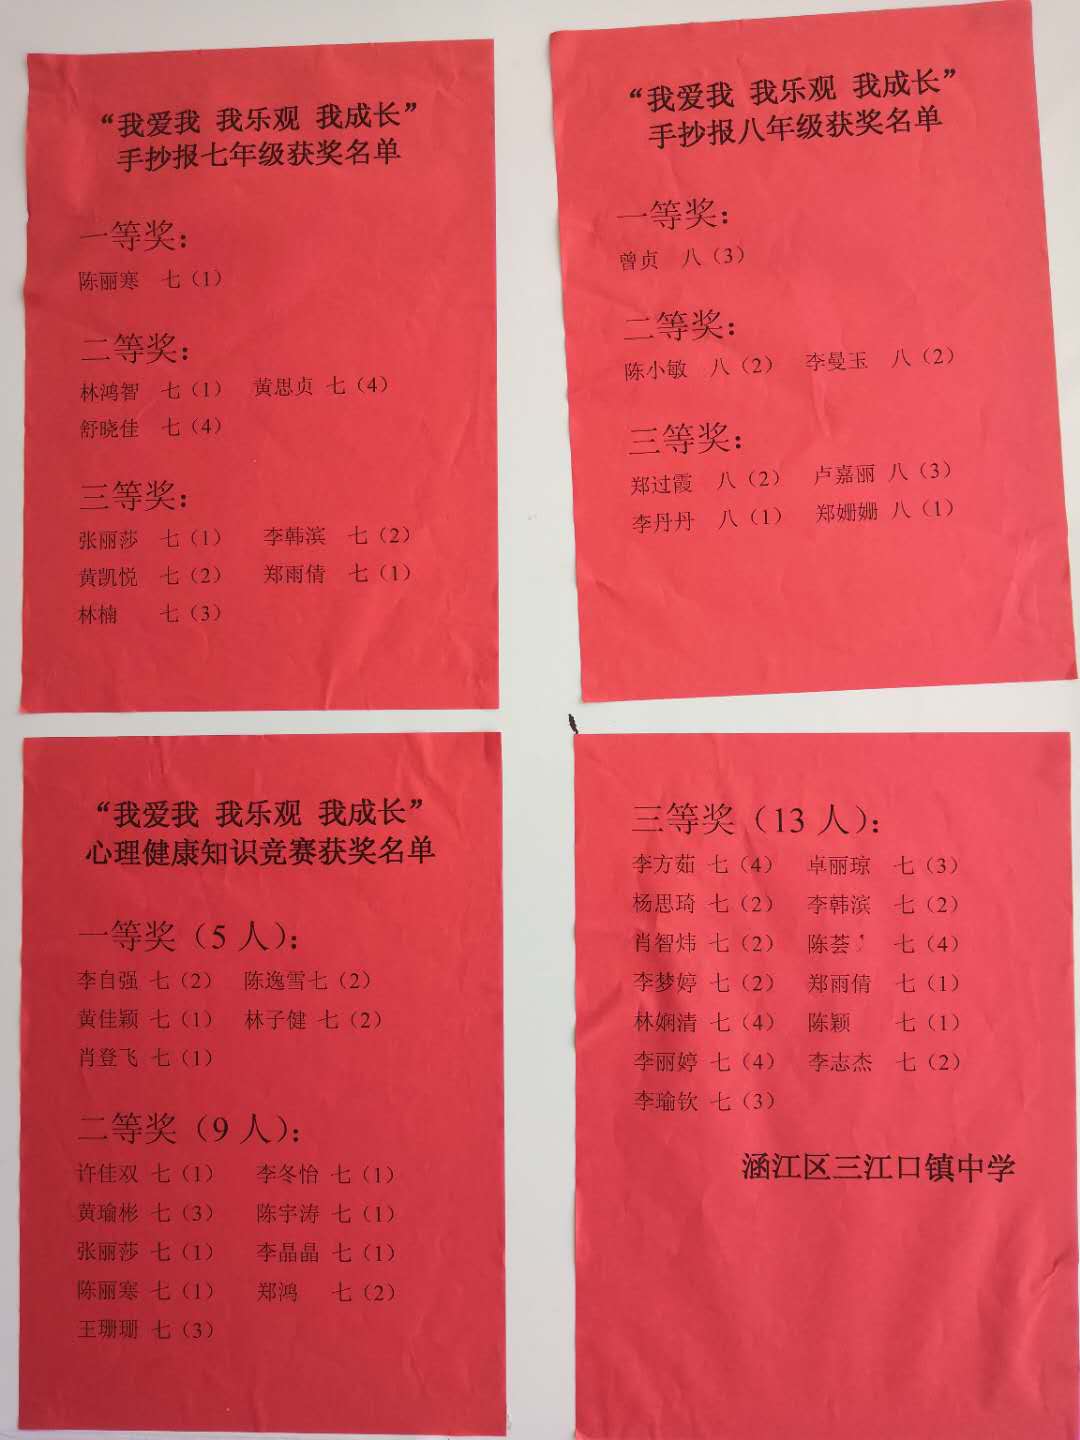 “我爱我 我乐观 我成长”
手抄报七年级获奖名单
一等奖：
陈丽寒 七（1）
二等奖：
林鸿智 七（1） 黄思贞 七（4）
舒晓佳 七（4）
三等奖：
张丽莎 七（1） 李韩滨 七（2）
黄凯悦 七（2） 郑雨倩 七（1）
林楠 七（3）
“我爱我 我乐观 我成长”
手抄报八年级获奖名单
一等奖：
曾贞 八（3）
二等奖：
陈小敏 八（2） 李曼玉 八（2）
三等奖：
郑过霞 八（2） 卢嘉丽 八（3）
李丹丹 八（1） 郑姗姗 八（1）
“我爱我 我乐观 我成长”
心理健康知识竞赛获奖名单
一等奖（5 人）：
李自强 七（2） 陈逸雪七（2）
黄佳颖 七（1） 林子健 七（2）
肖登飞 七（1）
二等奖（9 人）：
许佳双 七（1） 李冬怡 七（1）
黄瑜彬 七（3） 陈宇涛 七（1）
张丽莎 七（1） 李晶晶 七（1）
陈丽寒 七（1） 郑鸿 七（2）
王珊珊 七（3）
三等奖（13 人）：
李方茹 七（4） 卓丽琼 七（3）
杨思琦 七（2） 李韩滨 七（2）
肖智炜 七（2） 陈荟 七（4）
李梦婷 七（2） 郑雨倩 七（1）
林娴清 七（4） 陈颖 七（1）
李丽婷 七（4） 李志杰 七（2）
李瑜钦 七（3）
涵江区三江口镇中学